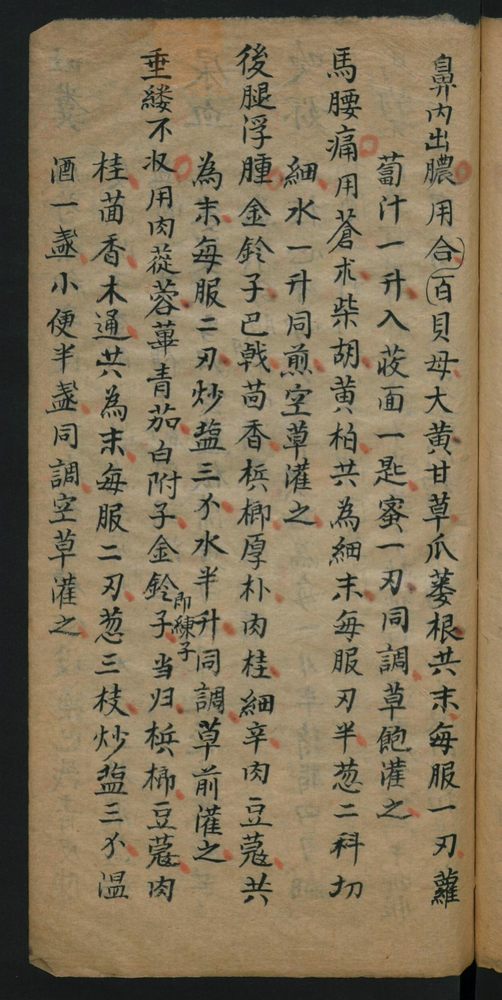 鼻内出膿用合百貝母大黄甘草瓜蒌根共末每服一刃蘿
蔔汁一升入荍面一匙蜜一刃同調草飽灌之
馬腰痛用蒼朮柴胡黄柏共為細末每服刃半葱二科切
細水一升同煎空草灌之
後腿浮腫金鈴子巴戟茴香梹榔厚朴肉桂細辛肉豆蔻共
為末每服二刃炒盐三个水半升同調草前灌之
垂縷不收用肉蓯蓉葦青茄白附子金鈴子即練子当归梹榔豆蔻肉
桂茴香木通共為末每服二刃葱三枝炒盐三个温
酒一盞小便半盞同調空草灌之